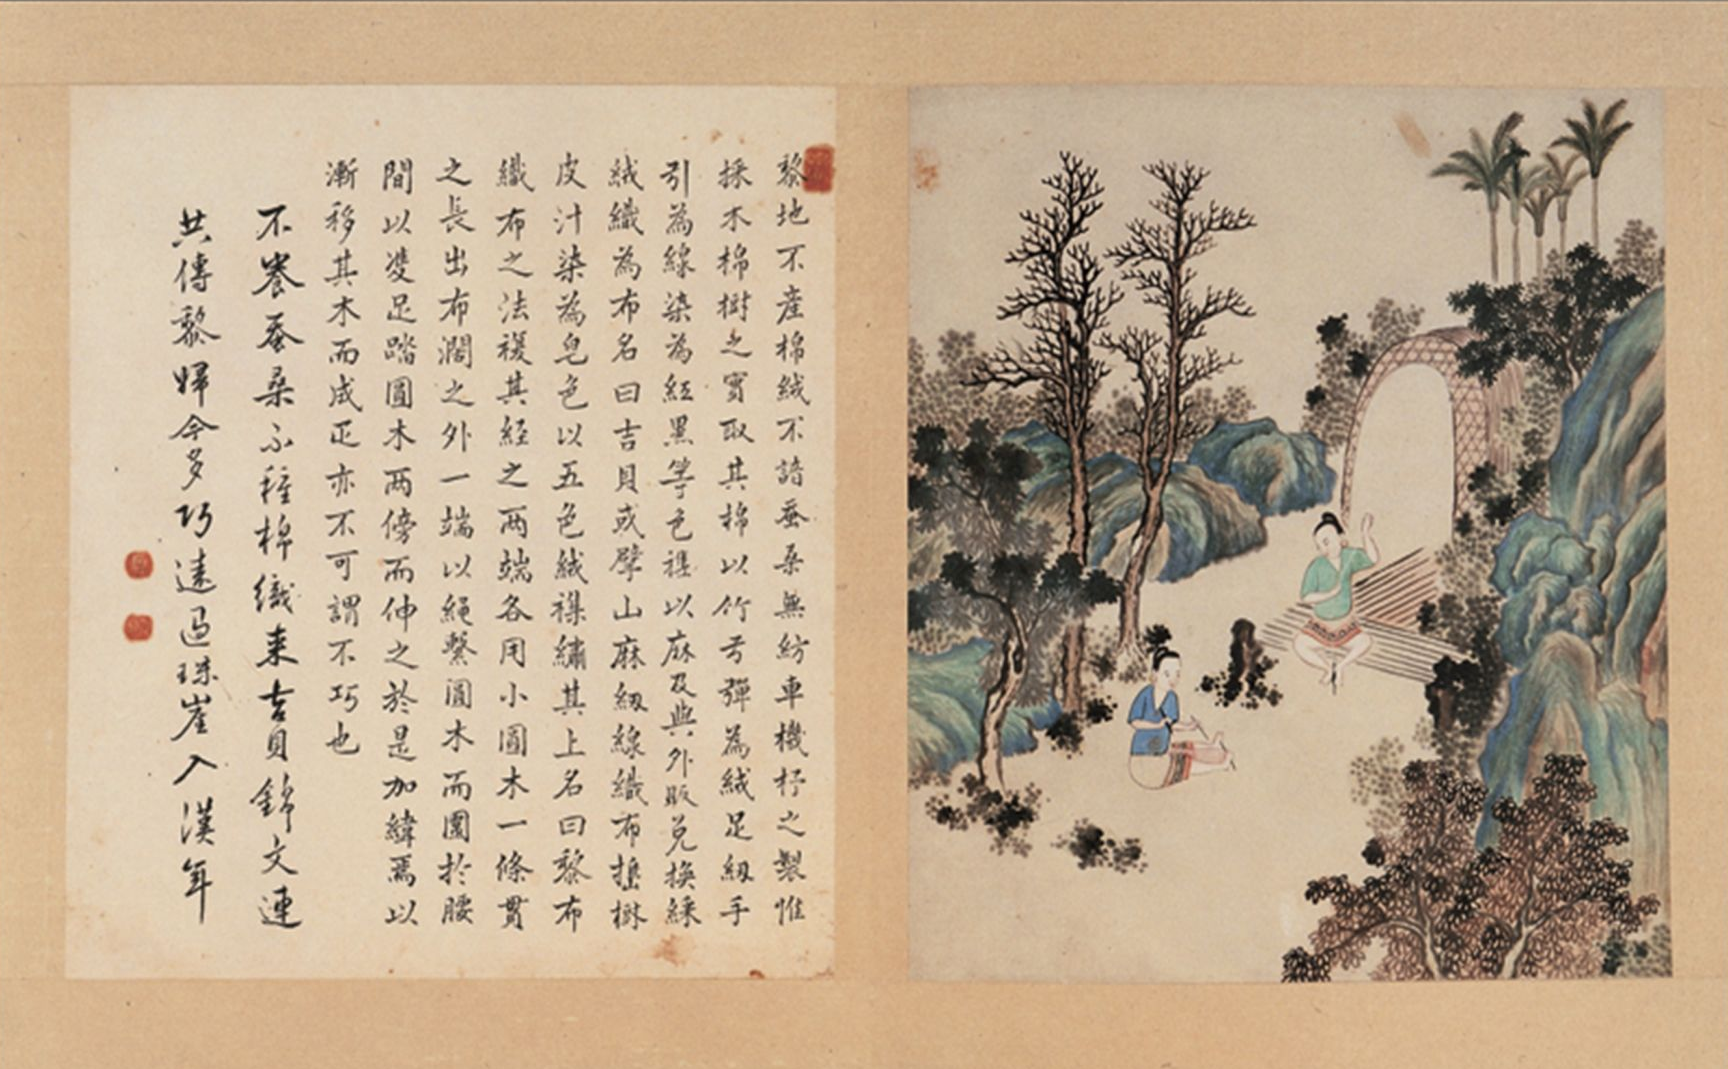 黎地不產棉絨不諳蚕桑無紡車機杼之製惟
採木棉樹之實取其棉以竹弓彈為絨足紉手
引為線染為紅黑等色襍以麻及與外販兌換綵
絨織為布名曰吉貝或擘山麻紉線織布搥樹
皮汁染為皂色以五色絨襍繡其上名曰黎布
織布之法複其經之兩端各用小圓木一條貫
之長出布濶之外一端以繩繫圓木而圍於腰
間以雙足踏圓木兩傍而伸之於是加緯焉以
漸移其木而成疋亦不可謂不巧也
不養蚕桑不種棉織来吉貝錦文連
共傳黎婦今多巧遠過珠崖入漢年